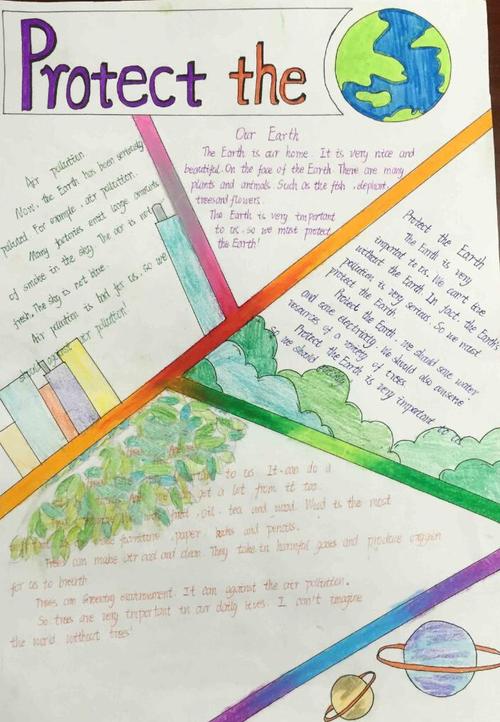 Protect the
Our Earth
The Earth is our home. It is very nice and
beautiful. On the face of the Earth. There are many
plants and animals. Such as the fish, elephant,
trees and flowers.
The Earth is very important
to us. so we must protect
the Earth!
Air pollution
Now, the Earth has been seriously
polluted. For example, air pollution.
Many factories emit large amounts
of smoke in the sky. The air is not
fresh. The sky is not blue.
Air pollution is bad for us, so we
against air pollution!
Protect the Earth
The Earth is very
important to us. We can't live
without the Earth. In fact, the Earth's
pollution is very serious. So we must
protect the Earth.
Protect the Earth, we should save water
and save electricity. We should also conserve
resources of a variety of trees
Protect the Earth is very important to us
So we should
to us. It can do a
get a lot from it too.
oil, tea and wood. Wood is the most
furniture, paper, and pencils.
Trees can make air cool and clean. They take in harmful gases and produce oxygen
for us to breath
Trees can Greening environment. It can against the air pollution.
So trees are very important in our daily lives. I can't imagine
the world without trees!